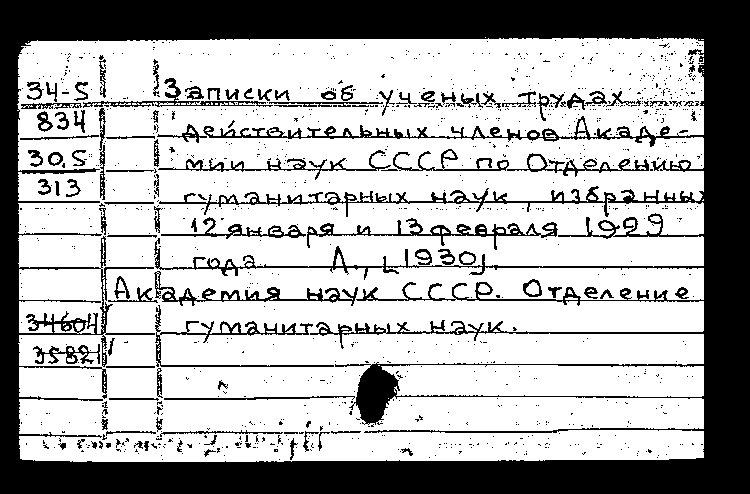 34-5 Записки об ученых трудах
834 действительных членов Акаде-
30.5 мии наук СССР по Отделению
313 гуманитарных наук, избранных
12 января и 13 февраля 1929
года. Л., [1930].
Академия наук СССР. Отделение
34604 гуманитарных наук.
35821